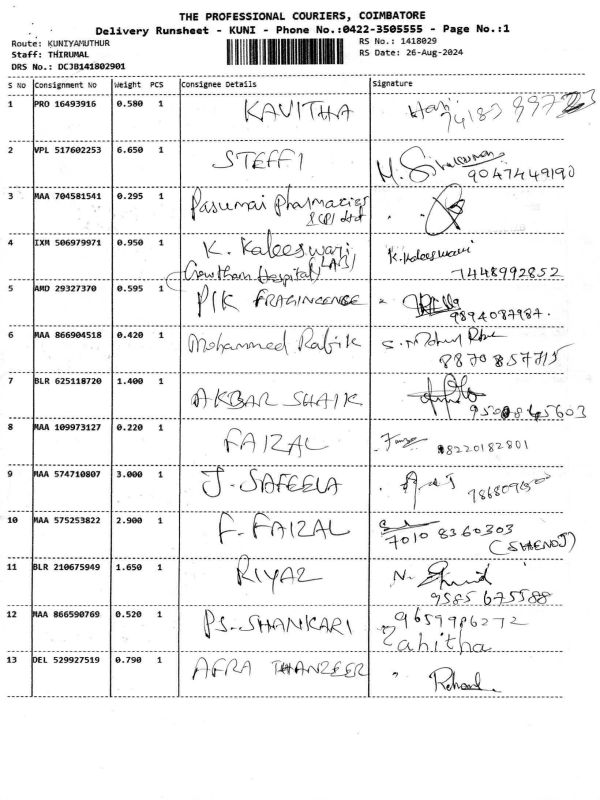 THE PROFESSIONAL COURIERS, COIMBATORE
Delivery Runsheet - KUNI - Phone No.:0422-3505555 - Page No.:1
Route: KUNIYAMUTHUR
Staff: THIRUMAL
DRS No.: DCJB141802901
RS No.: 1418029
RS Date: 26-Aug-2024
S No Consignment No Weight PCS Consignee Details Signature
1 PRO 16493916 0.580 1 KAVITHA
2 VPL 517602253 6.650 1 STEFFI
9047449190
3 MAA 704581541 0.295 1 Pasumai Pharmacies
4 IXM 506979971 0.950 1 K. Kaleeswari K.Kaleeswari
(LAB)
Gowtham Hospital 7448992852
5 AMD 29327370 0.595 1 PIK FRAGINCENSE
9894087987.
6 MAA 866904518 0.420 1 Mohammed Rafik
8870857715
7 BLR 625118720 1.400 1 AKBAR SHAIK
8 MAA 109973127 0.220 1 FAIZAL 8220182801
9 MAA 574710807 3.000 1 J. SAFEELA
10 MAA 575253822 2.900 1 F. FAIZAL
7010 8360303
11 BLR 210675949 1.650 1 RIYAZ
9585 675588
12 MAA 866590769 0.520 1 PS. SHANKARI 9659986272
Zahitha
13 DEL 529927519 0.790 1 AFRA THANZEER